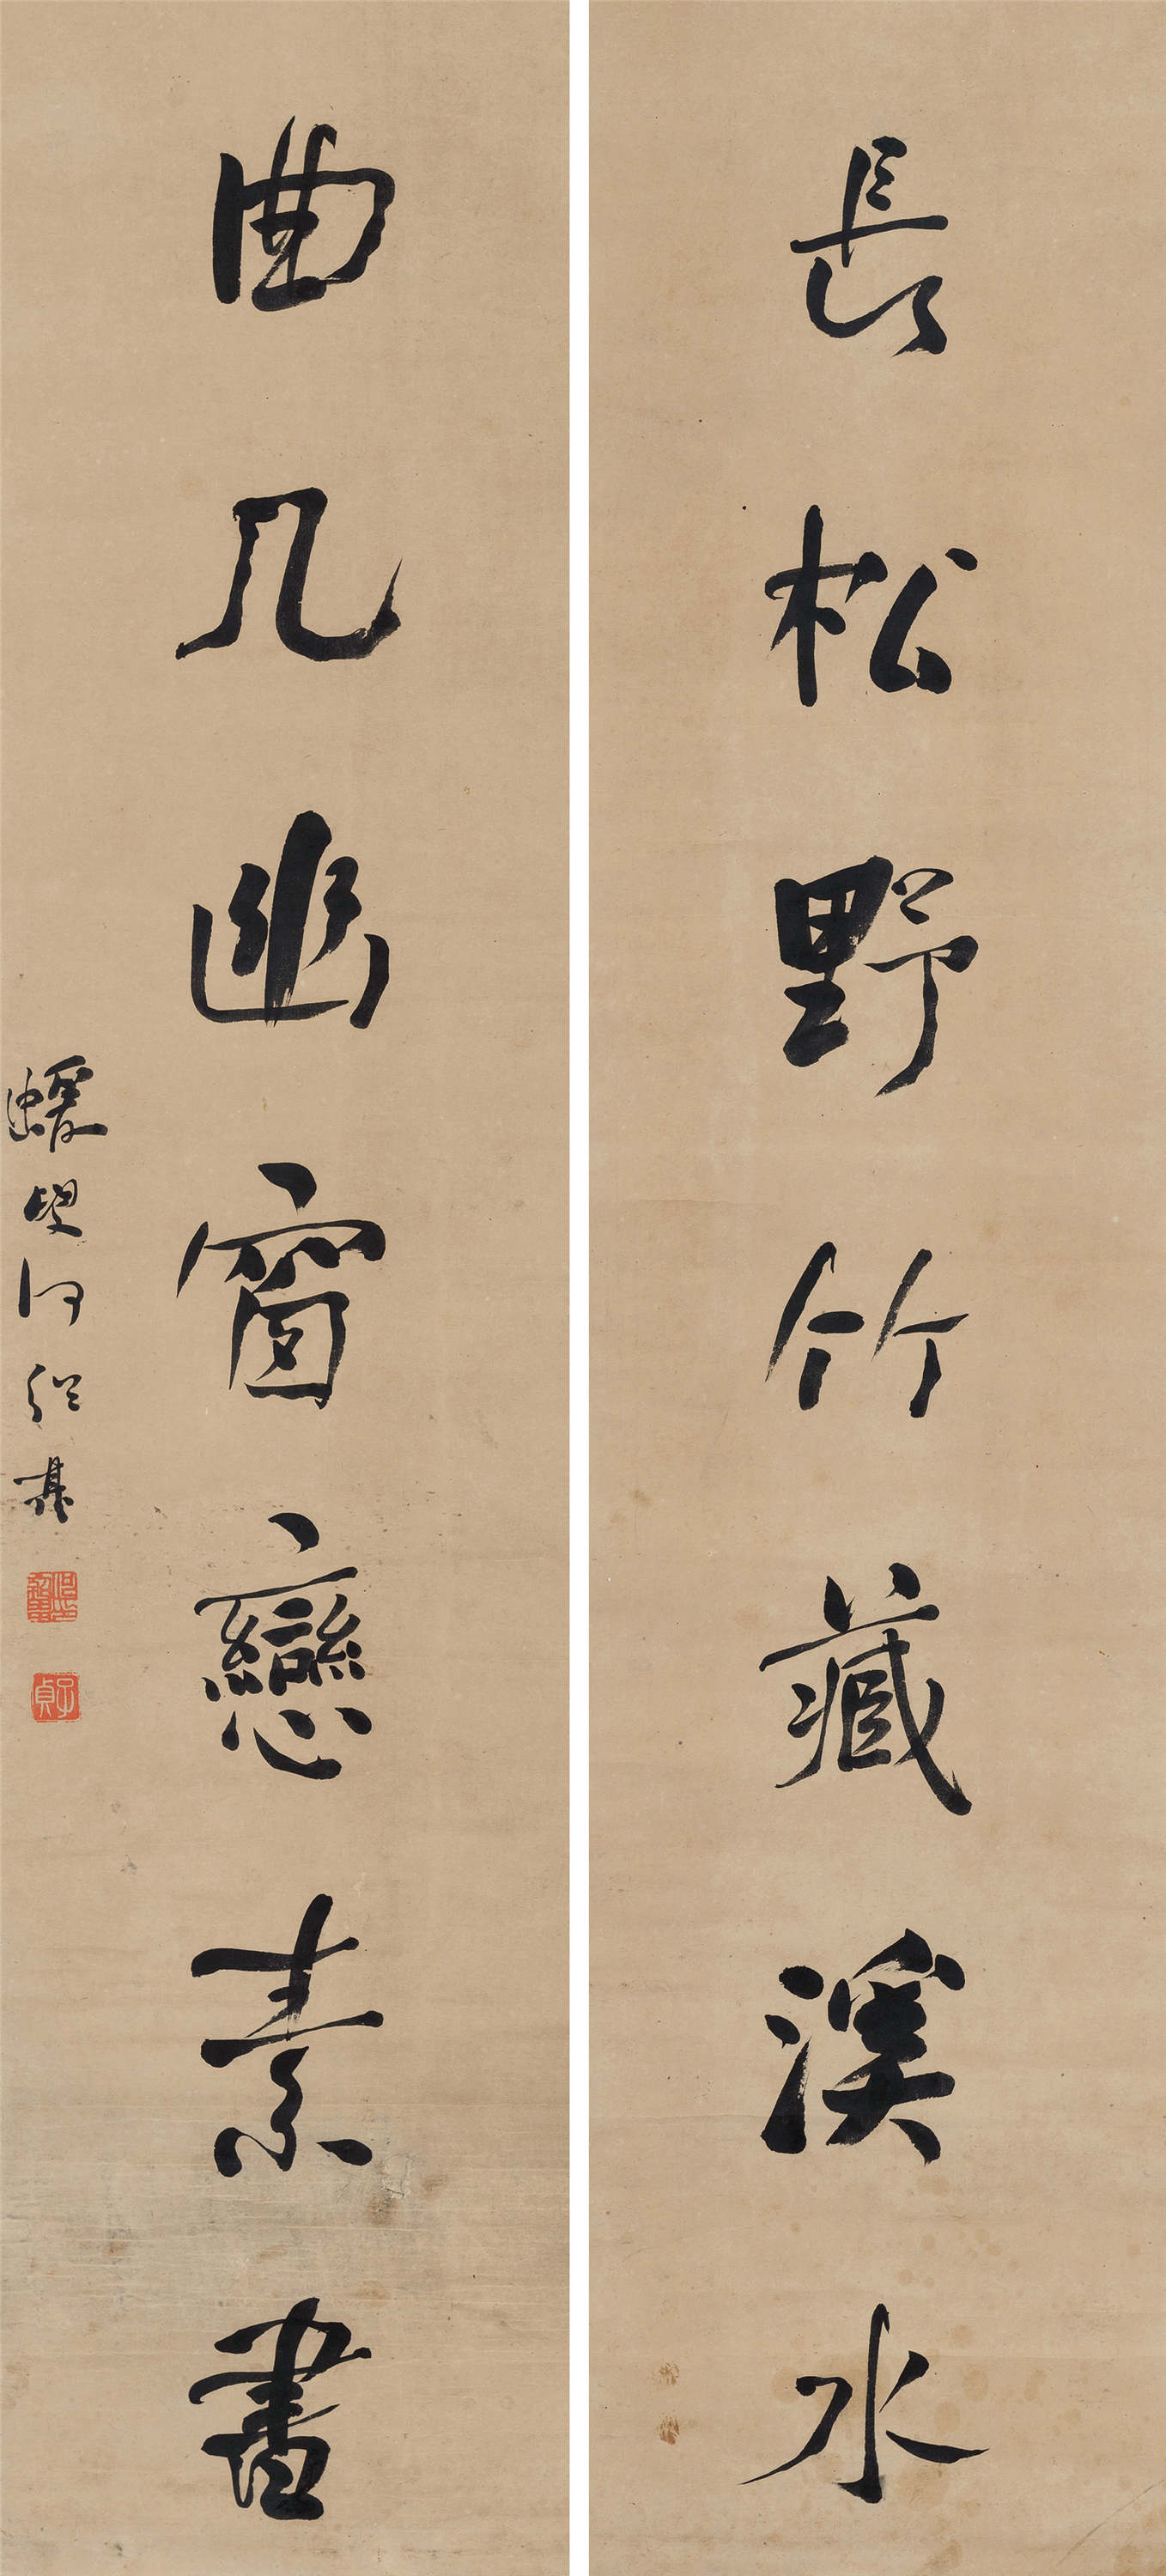 長松野竹藏溪水
曲几幽窗戀素書
蝯叟何紹基
何紹基印
子貞